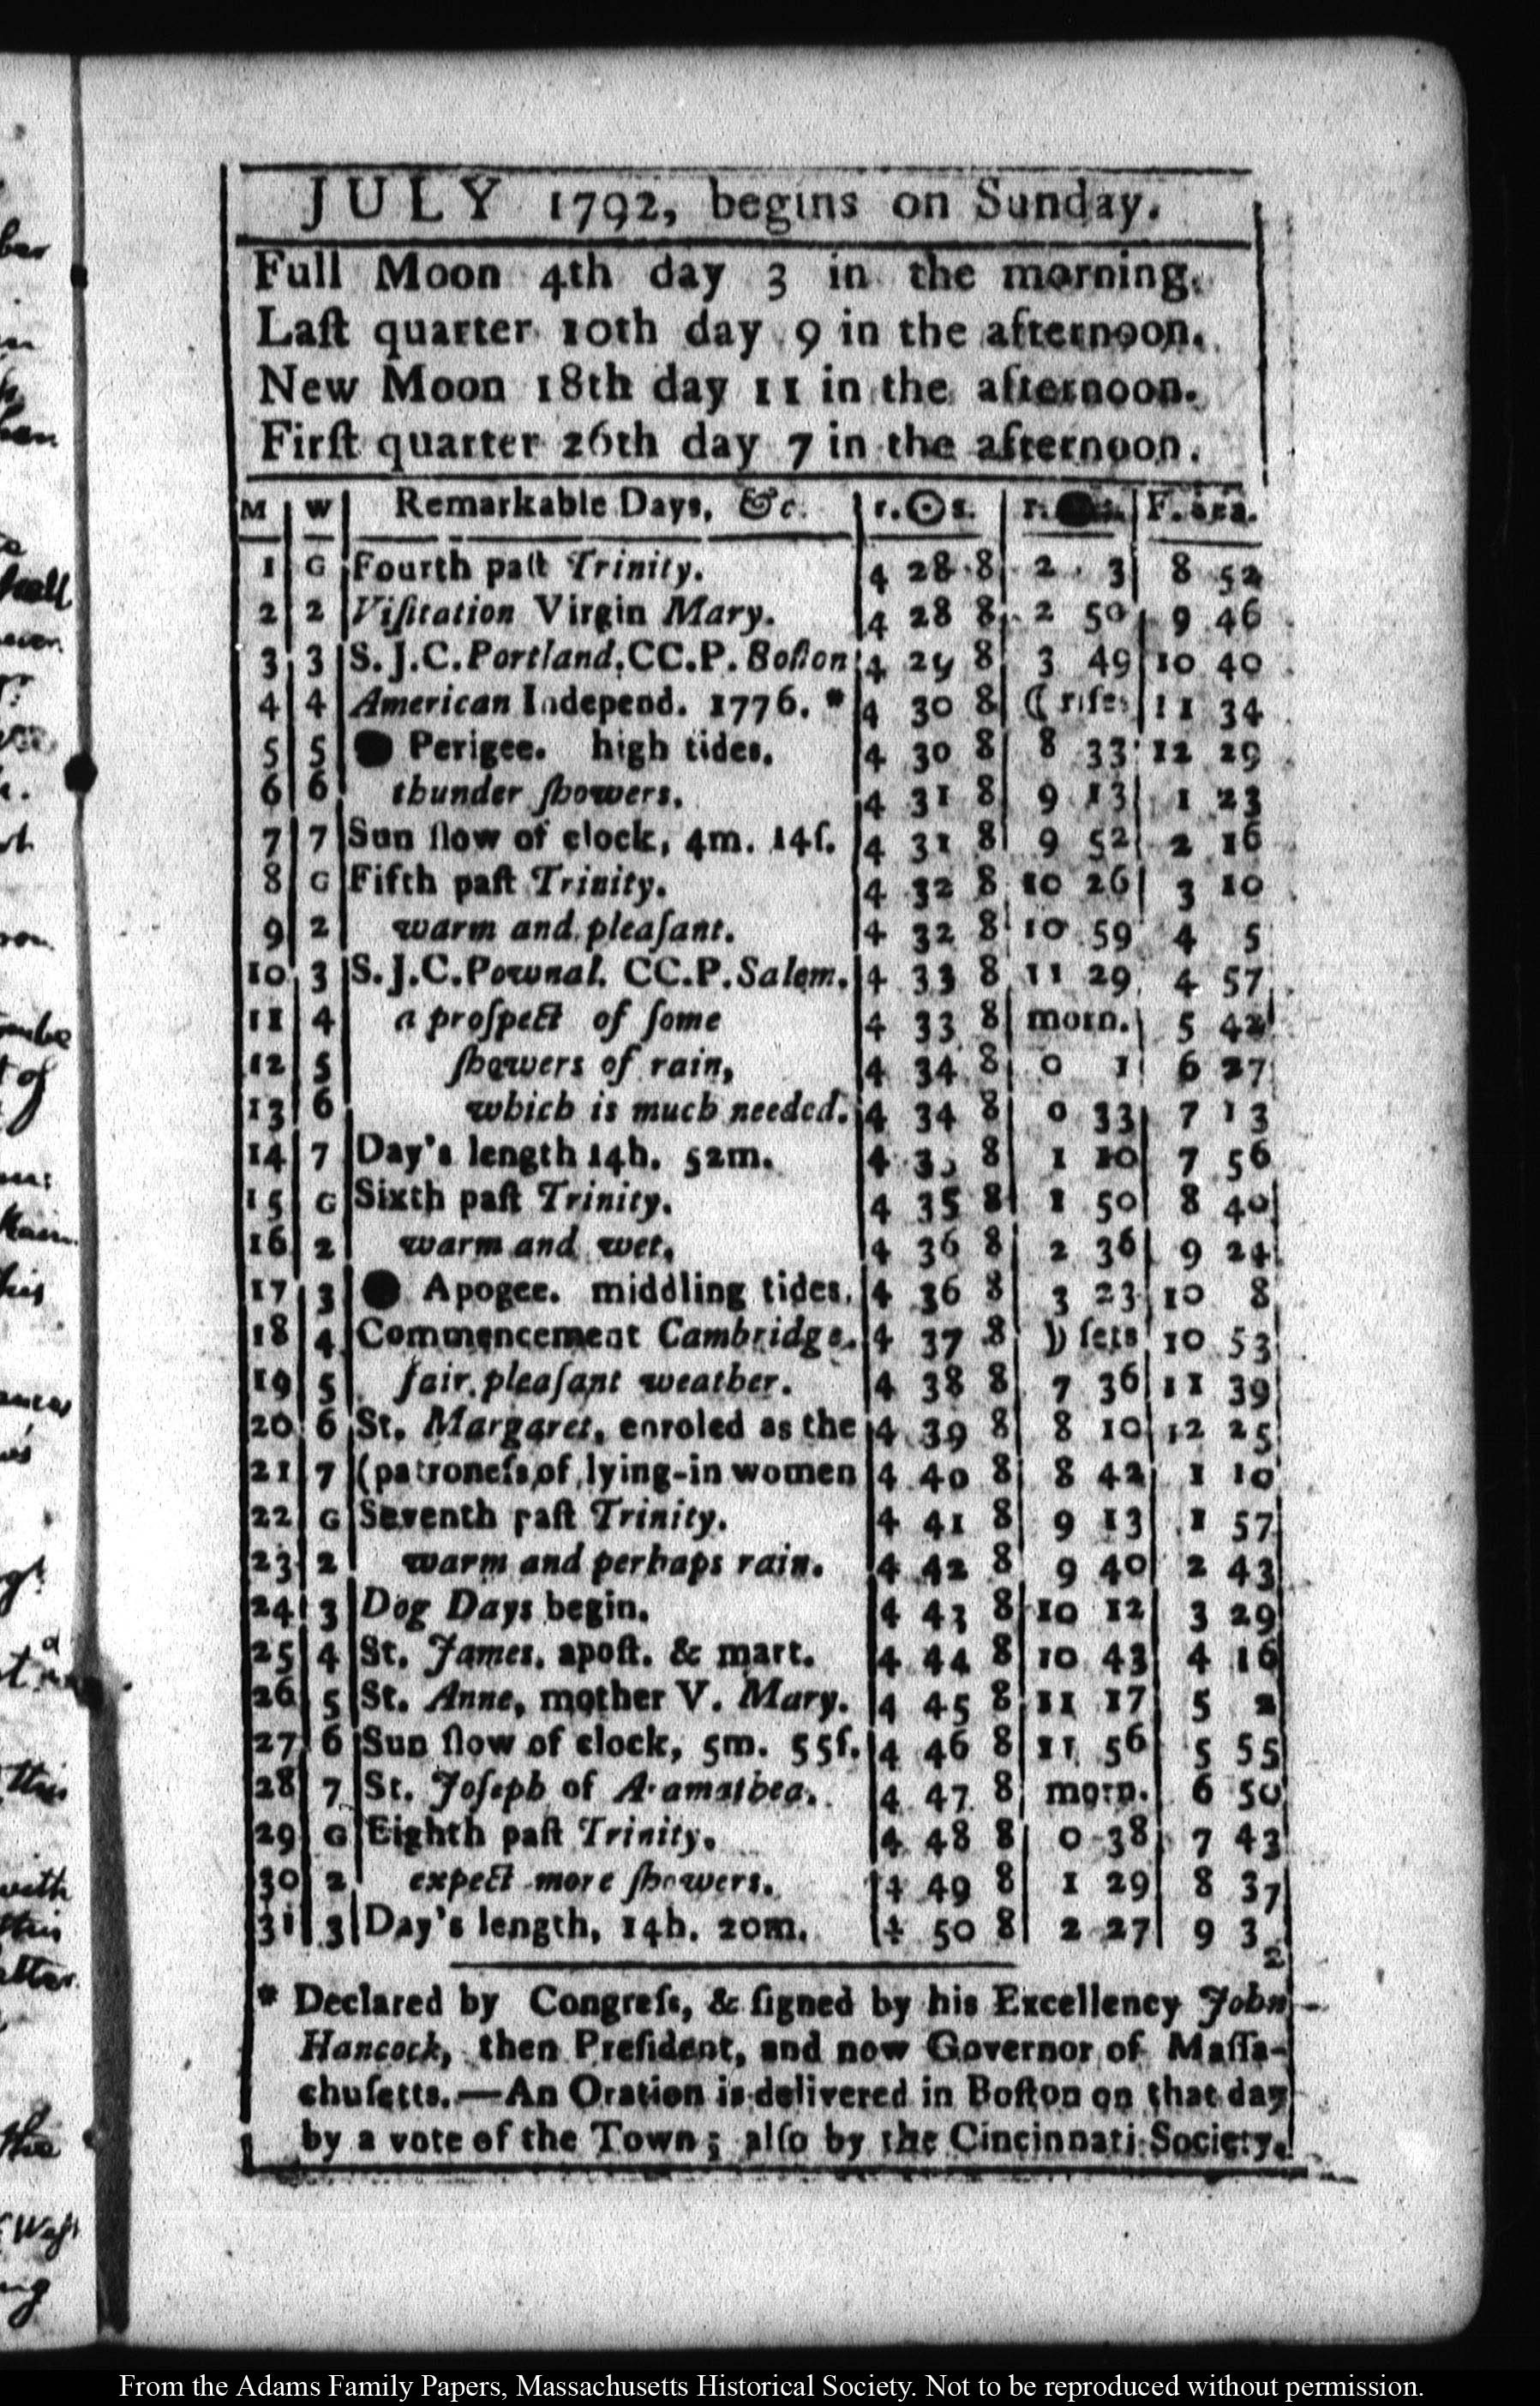 JULY 1792, begins on Sunday.
Full Moon 4th day 3 in the morning.
Laſt quarter 10th day 9 in the afternoon.
New Moon 18th day 11 in the afternoon.
Firſt quarter 26th day 7 in the afternoon.
M W Remarkable Days, &c. r.☉s. F. sea.
1 G Fourth paſt Trinity. 4 28 8 2 3 8 52
2 2 Viſitation Virgin Mary. 4 28 8 2 50 9 46
3 3 S.J.C. Portland. CC.P. Boſton 4 29 8 3 49 10 40
4 4 American Independ. 1776. * 4 30 8 ☾ riſes 11 34
5 5 ● Perigee. high tides. 4 30 8 8 33 12 29
6 6 thunder ſhowers. 4 31 8 9 13 1 23
7 7 Sun ſlow of clock, 4m. 14ſ. 4 31 8 9 52 2 16
8 G Fifth paſt Trinity. 4 32 8 10 26 3 10
9 2 warm and pleaſant. 4 32 8 10 59 4 5
10 3 S.J.C. Pownal. CC.P. Salem. 4 33 8 11 29 4 57
11 4 a proſpect of ſome 4 33 8 morn. 5 42
12 5 ſhowers of rain, 4 34 8 0 1 6 27
13 6 which is much needed. 4 34 8 0 33 7 13
14 7 Day's length 14h. 52m. 4 35 8 1 10 7 56
15 G Sixth paſt Trinity. 4 35 8 1 50 8 40
16 2 warm and wet. 4 36 8 2 36 9 24
17 3 ● Apogee. middling tides. 4 36 8 3 23 10 8
18 4 Commencement Cambridge. 4 37 8 ☽ ſets 10 53
19 5 fair, pleaſant weather. 4 38 8 7 36 11 39
20 6 St. Margaret, enroled as the 4 39 8 8 10 12 25
21 7 (patroneſs of lying-in women 4 40 8 8 42 1 10
22 G Seventh paſt Trinity. 4 41 8 9 13 1 57
23 2 warm and perhaps rain. 4 42 8 9 40 2 43
24 3 Dog Days begin. 4 43 8 10 12 3 29
25 4 St. James, apoſt. & mart. 4 44 8 10 43 4 16
26 5 St. Anne, mother V. Mary. 4 45 8 11 17 5 2
27 6 Sun ſlow of clock, 5m. 55ſ. 4 46 8 11 56 5 55
28 7 St. Joſeph of Aramathea. 4 47 8 morn. 6 50
29 G Eighth paſt Trinity. 4 48 8 0 38 7 43
30 2 expect more ſhowers. 4 49 8 1 29 8 37
31 3 Day's length, 14h. 20m. 4 50 8 2 27 9 32
* Declared by Congreſs, & ſigned by his Excellency John
Hancock, then Preſident, and now Governor of Maſſa-
chuſetts.—An Oration is delivered in Boſton on that day
by a vote of the Town; alſo by the Cincinnati Society.
From the Adams Family Papers, Massachusetts Historical Society. Not to be reproduced without permission.